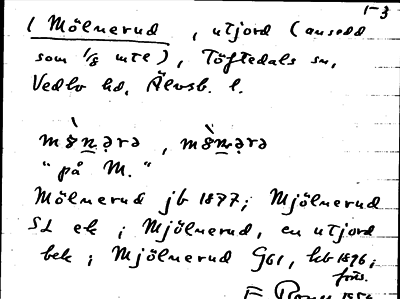 1-3
1 Mölnerud, utjord (ansedd
som 1/8 mtl), Töftedals sn,
Vedbo hd, Älvsb. l.
"på M."
Mölnerud jb 1877; Mjölnerud
SL ek; Mjölnerud, en utjord
bek; Mjölnerud G61, kb 1896;
forts.